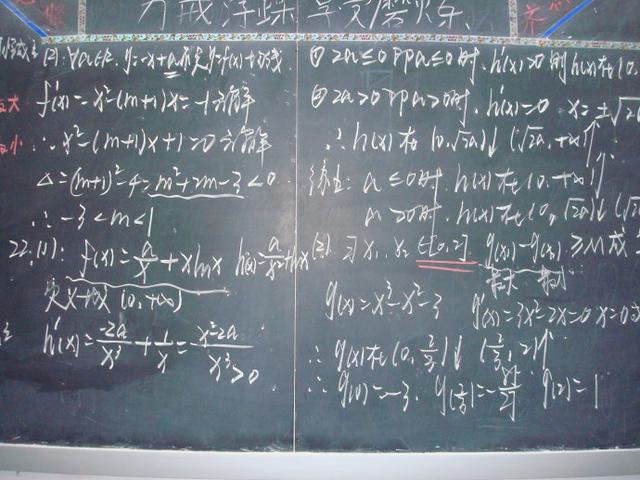 力戒浮躁 享受磨炼
(2): ∀a∈R. y=-x+a 不是 y=f(x) 切线
f'(x)=x²-(m+1)x=-1 无解
∴ x²-(m+1)x+1=0 无解
Δ=(m+1)²-4=m²+2m-3<0
∴ -3<m<1
22.(1): f(x)=a/x+xlnx h(x)=a/x²+lnx
定义域 (0,+∞)
h'(x)=-2a/x³+1/x=x²-2a/x³>0
① 2a≤0 即a≤0时. h'(x)>0 则h(x)在(0.
② 2a>0 即a>0时. h'(x)=0 x=±√2a
∴ h(x)在(0,√2a)↓ (√2a,+∞)↑
综上: a≤0时 h(x)在(0,+∞)↑
a>0时. h(x)在(0,√2a)↓ (√2
(2) ∃x₁、x₂∈[0,2]. g(x₁)-g(x₂)≥M成
最大 最小
g(x)=x³-x²-3 g'(x)=3x²-2x=0 x=0
∴ g(x)在(0,2/3)↓ (2/3,2)↑
∴ g(0)=-3. g(2/3)=-85/27 g(2)=1